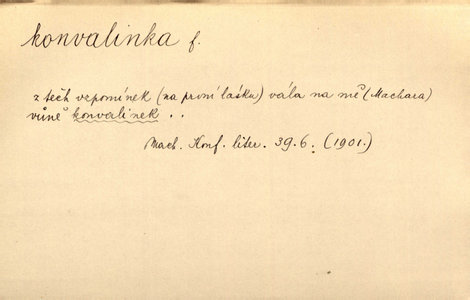 konvalinka f.
z těch vzpomínek (na první lásku) vála na mě (Machara)
vůně konvalinek . .
Mach. Konf. liter. 39.6. (1901.)